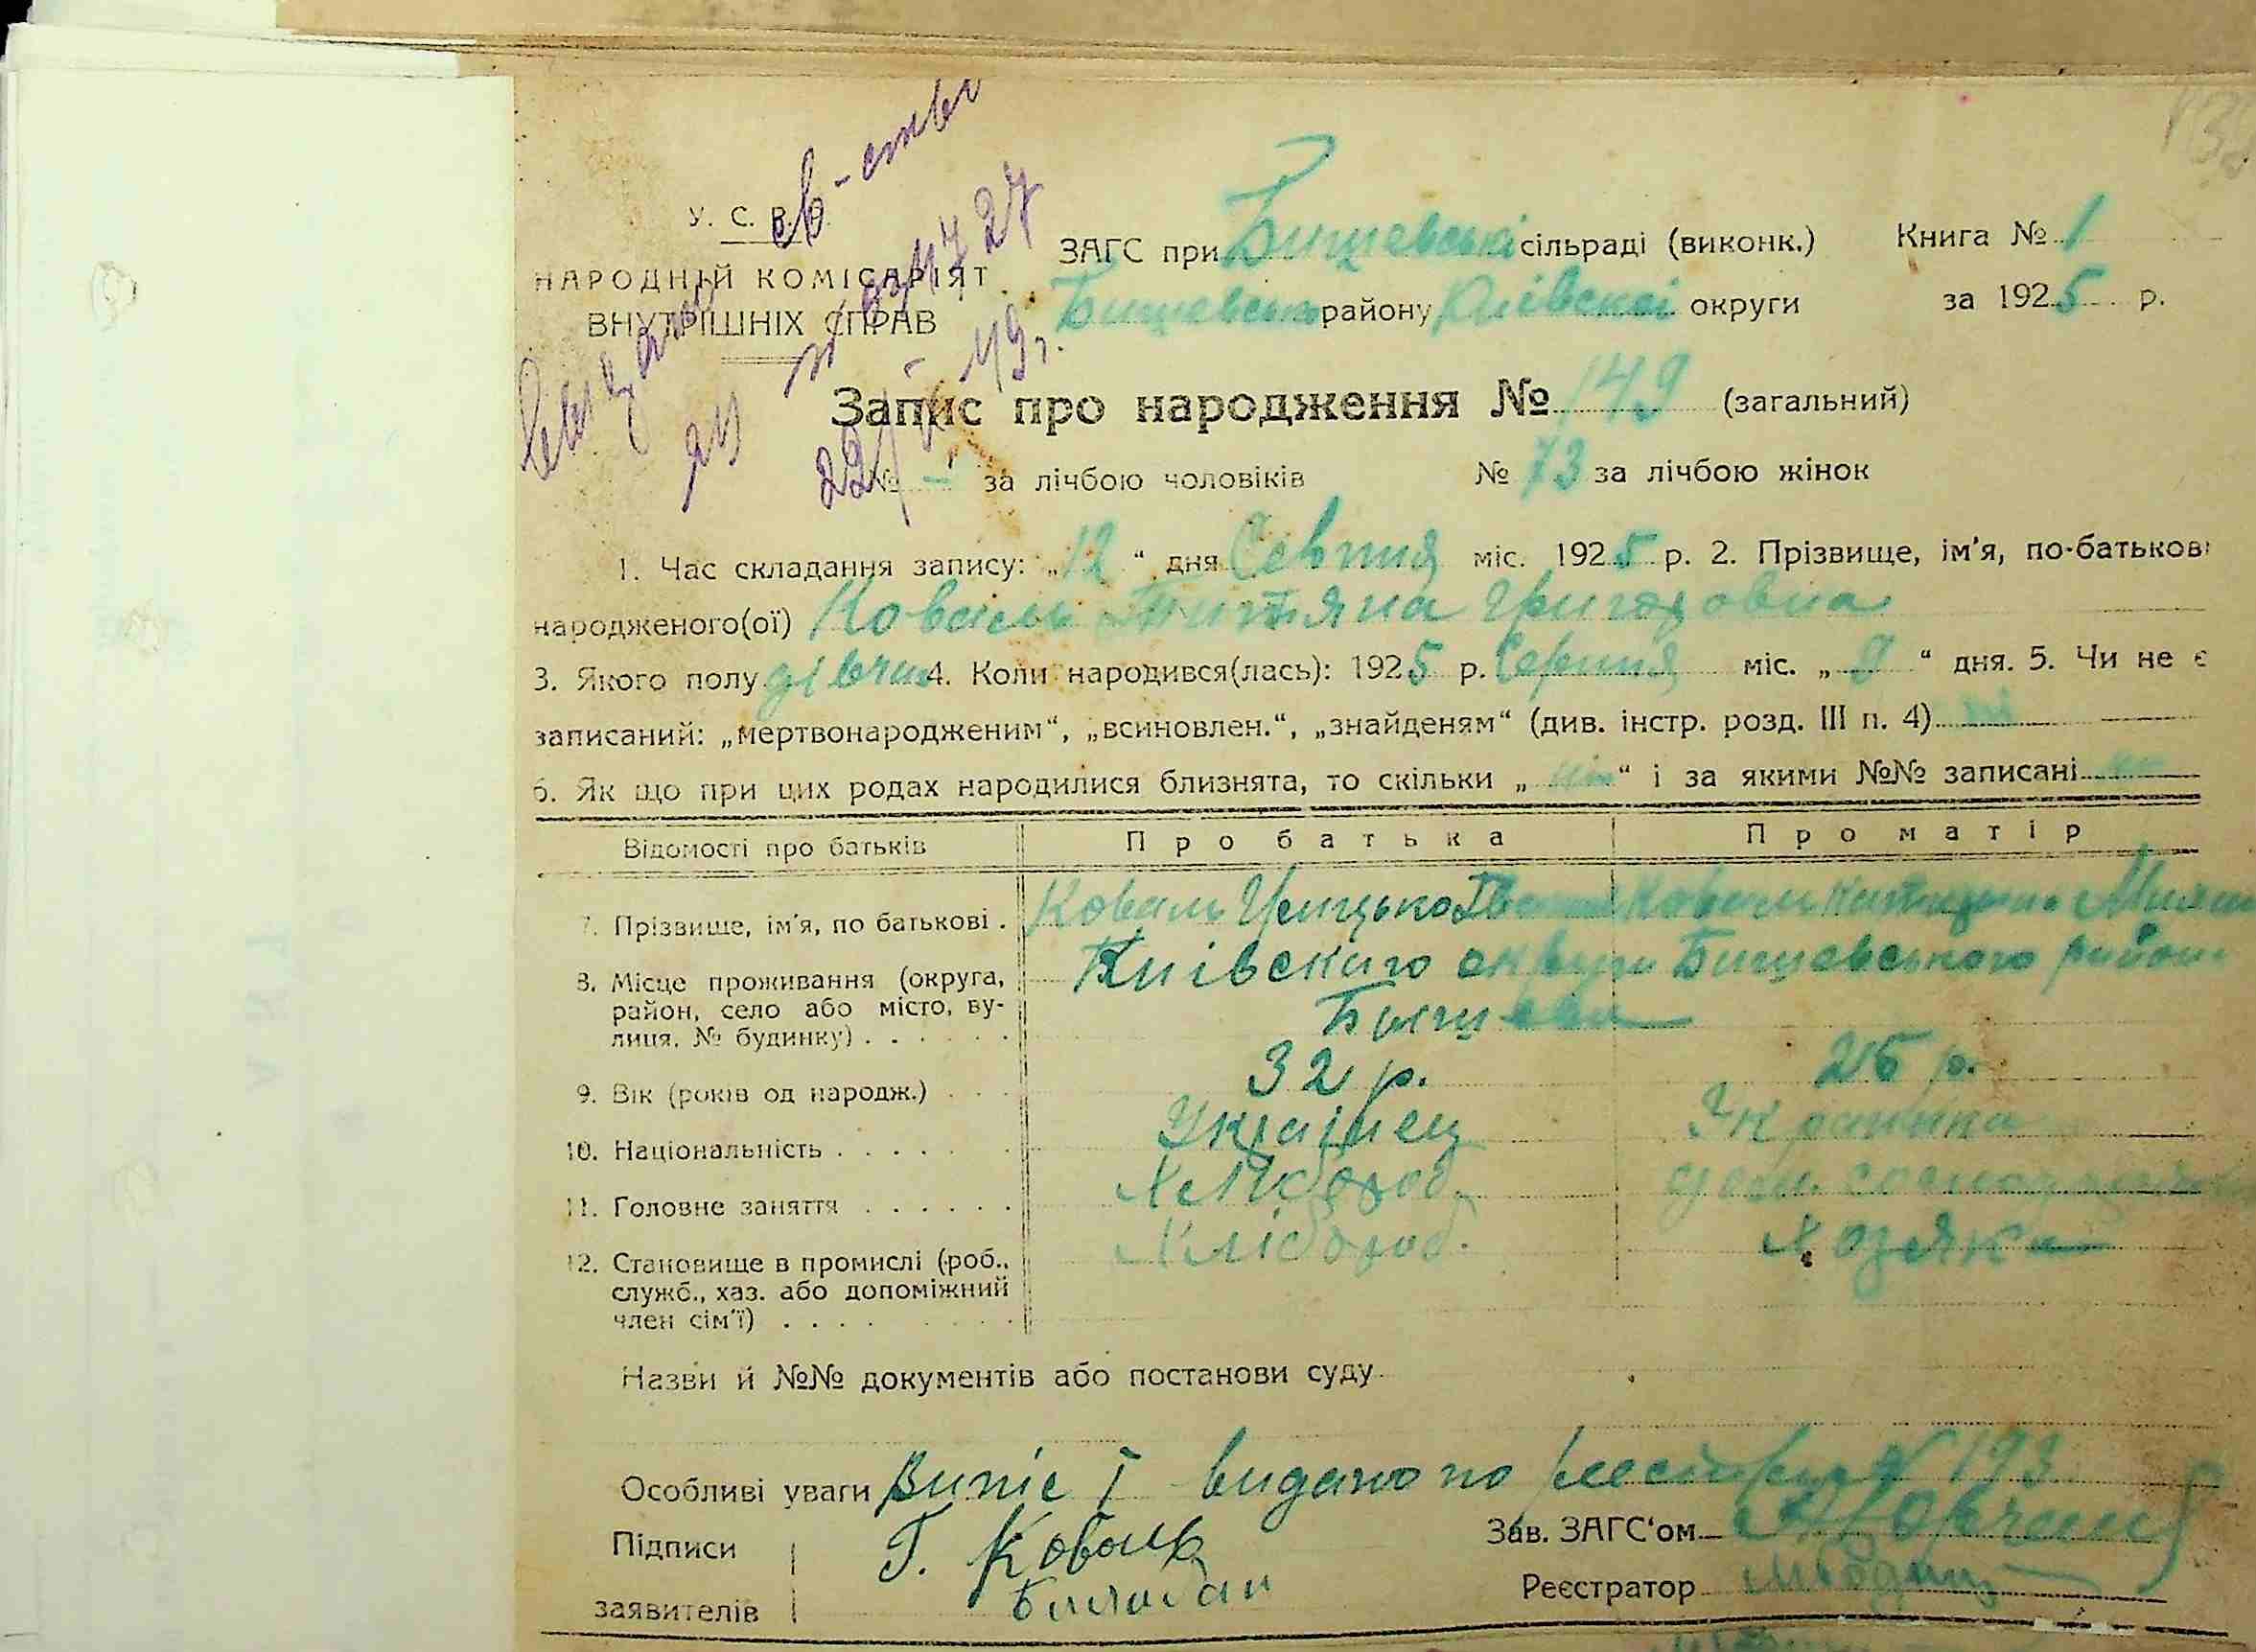 св-ство
У. С. Р. Р.
НАРОДНІЙ КОМІСАРІЯТ
ВНУТРІШНІХ СПРАВ
ЗАГС при Бишевські сільраді (виконк.) Книга № 1
Бишевсько району Київскої округи за 1925 р.
Запис про народження № 149 (загальний)
№ - за лічбою чоловіків № 73 за лічбою жінок
1. Час складання запису: „12“ дня Серпня міс. 1925 р. 2. Прізвище, ім'я, по-батькові
народженого(ої) Коваль Титяна Григоровна
3. Якого полу дівчи 4. Коли народився(лась): 1925 р. Серпня міс. „8“ дня. 5. Чи не є
записаний: „мертвонародженим“, „всиновлен.“, „знайденям“ (див. інстр. розд. III п. 4) ні
6. Як що при цих родах народилися близнята, то скільки „ “ і за якими №№ записані
Відомості про батьків Про батька Про матір
7. Прізвище, ім'я, по батькові . Коваль Грицько Коваль
8. Місце проживання (округа, район, село або місто, вулиця, № будинку) . . . . . . Київского округи Бишевського району
Бышева
9. Вік (років од народж.) . . . 32 р. 25 р.
10. Національність . . . . . Українец Украинка
11. Головне заняття . . . . . . Хлібороб.
12. Становище в промислі (роб., служб., хаз. або допоміжний член сім'ї) . . . . Хлібороб. Хозяйка
Назви й №№ документів або постанови суду
Особливі уваги Випіс І видано по реєстру № 193
Підписи Г. Коваль Зав. ЗАГС‘ом
заявителів Реєстратор